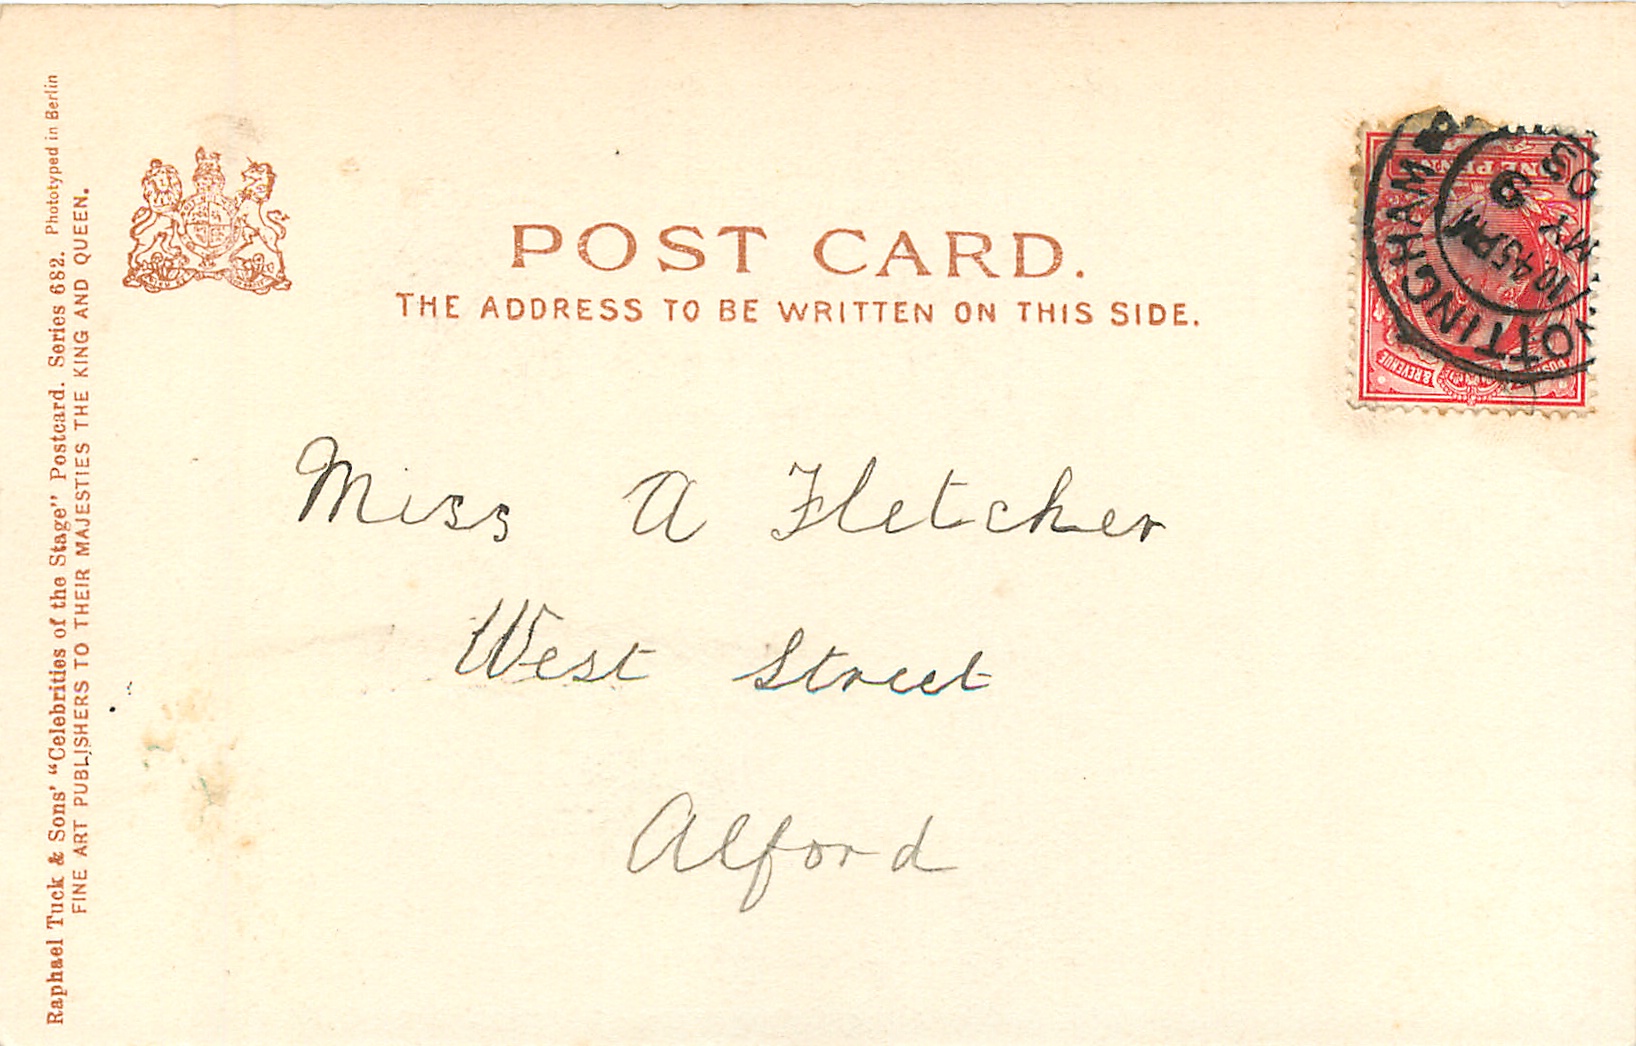 POST CARD.
THE ADDRESS TO BE WRITTEN ON THIS SIDE.
Miss A Fletcher
West Street
Alford
Raphael Tuck & Sons' "Celebrities of the Stage" Postcard. Series 682. Phototyped in Berlin
FINE ART PUBLISHERS TO THEIR MAJESTIES THE KING AND QUEEN.
NOTTINGHAM
10.45 PM
MY 9
03
& REVENUE